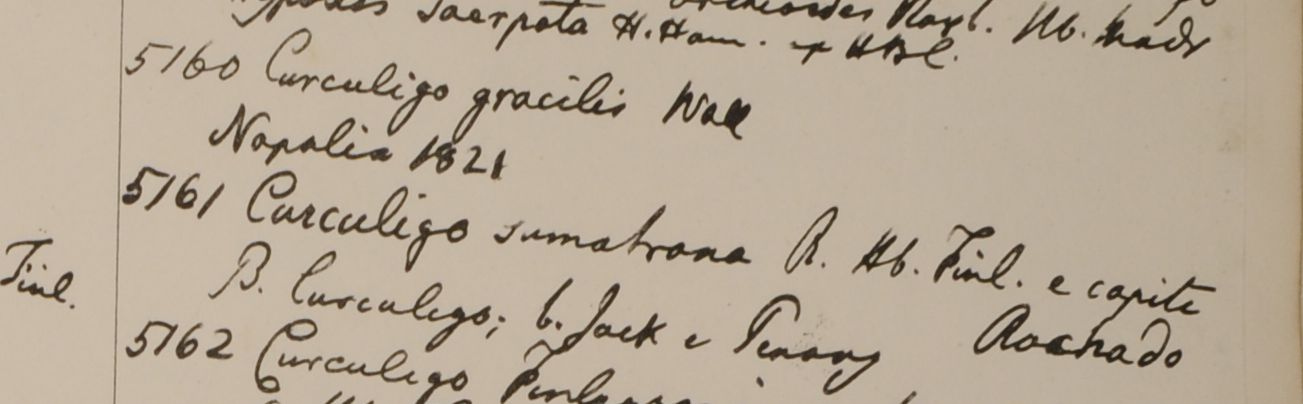 orchioides Roxb. Hb. Madr
H. Ham. HBL.
5160 Curculigo gracilis Wall
Napalia 1821
5161 Curculigo sumatrana R. Hb. Finl. e capite
Rachado
Finl.
B. Curculigo; b. Jack e Penang
5162 Curculigo